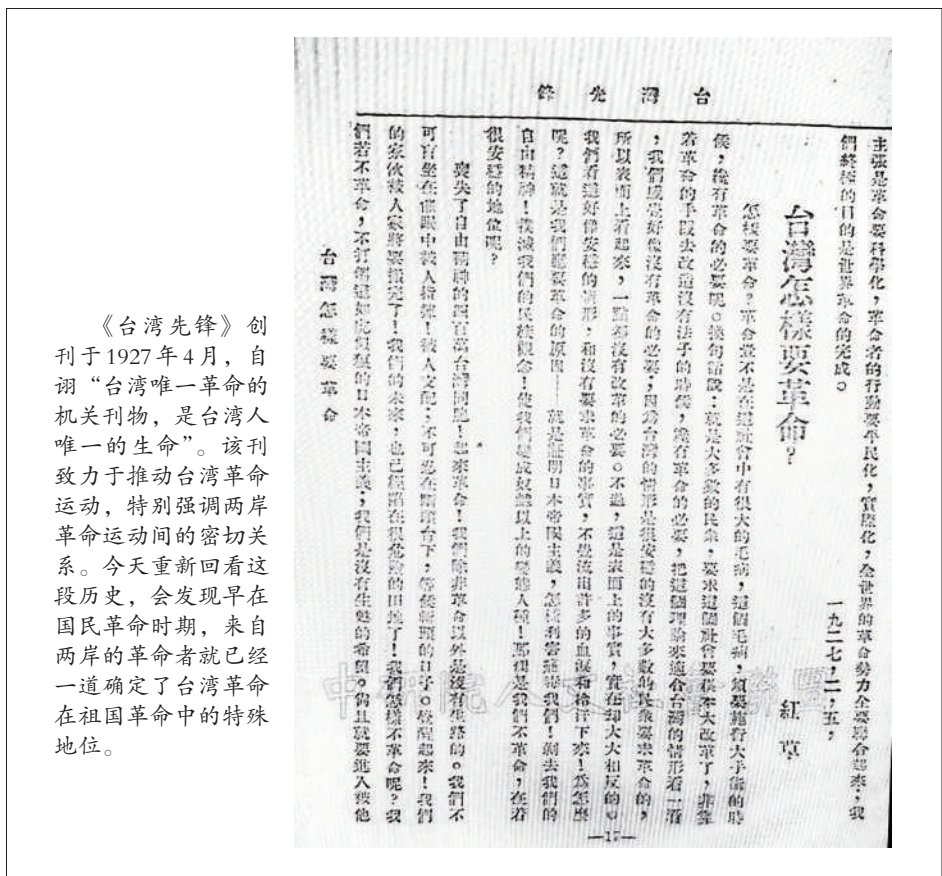 《台湾先锋》创
刊于1927年4月，自
诩“台湾唯一革命的
机关刊物，是台湾人
唯一的生命”。该刊
致力于推动台湾革命
运动，特别强调两岸
革命运动间的密切关
系。今天重新回看这
段历史，会发现早在
国民革命时期，来自
两岸的革命者就已经
一道确定了台湾革命
在祖国革命中的特殊
地位。
台灣先鋒
主張是革命要科學化，革命者的行動要平民化，實際化，全世界的革命勢力全要聯合起來，我
們終極的目的是世界革命的完成。
一九二七，二，五，
台灣怎樣要革命？
紅 草
怎樣要革命？革命豈不是在這社會中有很大的毛病，這個毛病，須要施行大手術的時
候，纔有革命的必要呢。換句話說：就是大多數的民衆，要求這個社會要根本大改革了，非靠
若革命的手段去改造沒有法子的時候，纔有革命的必要，把這個理論來適合台灣的情形看一看
，我們感覺好像沒有革命的必要；因爲台灣的情形是很安穩的沒有大多數的民衆要求革命的，
所以表面上看起來，一點都沒有改革的必要。不過，這是表面上的事實，實在却大大相反的。
我們看這好像安穩的情形，和沒有要求革命的事實，不覺流出許多的血淚和冷汗下來！爲怎麼
呢？這就是我們應要革命的原因——就是証明日本帝國主義，怎樣利害壓搾我們！剝去我們的
自由精神！撲滅我們的民族觀念！使我們變成奴隸以上的變態人種！那裡是我們不革命，在着
很安穩的地位呢？
喪失了自由精神的四百萬台灣同胞！起來革命！我們除非革命以外是沒有生路的。我們不
可盲坐在催眠中被人指揮！被人支配；不可忍在斷頭台下，等候斬頭的日子。醒起來！我們
的家伙被人家將要搬完了！我們的未來，也已經陷在很危險的田地了！我們怎樣不革命呢？我
們若不革命，不打倒這如此的日本帝國主義，我們是沒有生的希望。尚且就要進入被他
台灣怎樣要革命
—17—
中研院人文社會聯圖